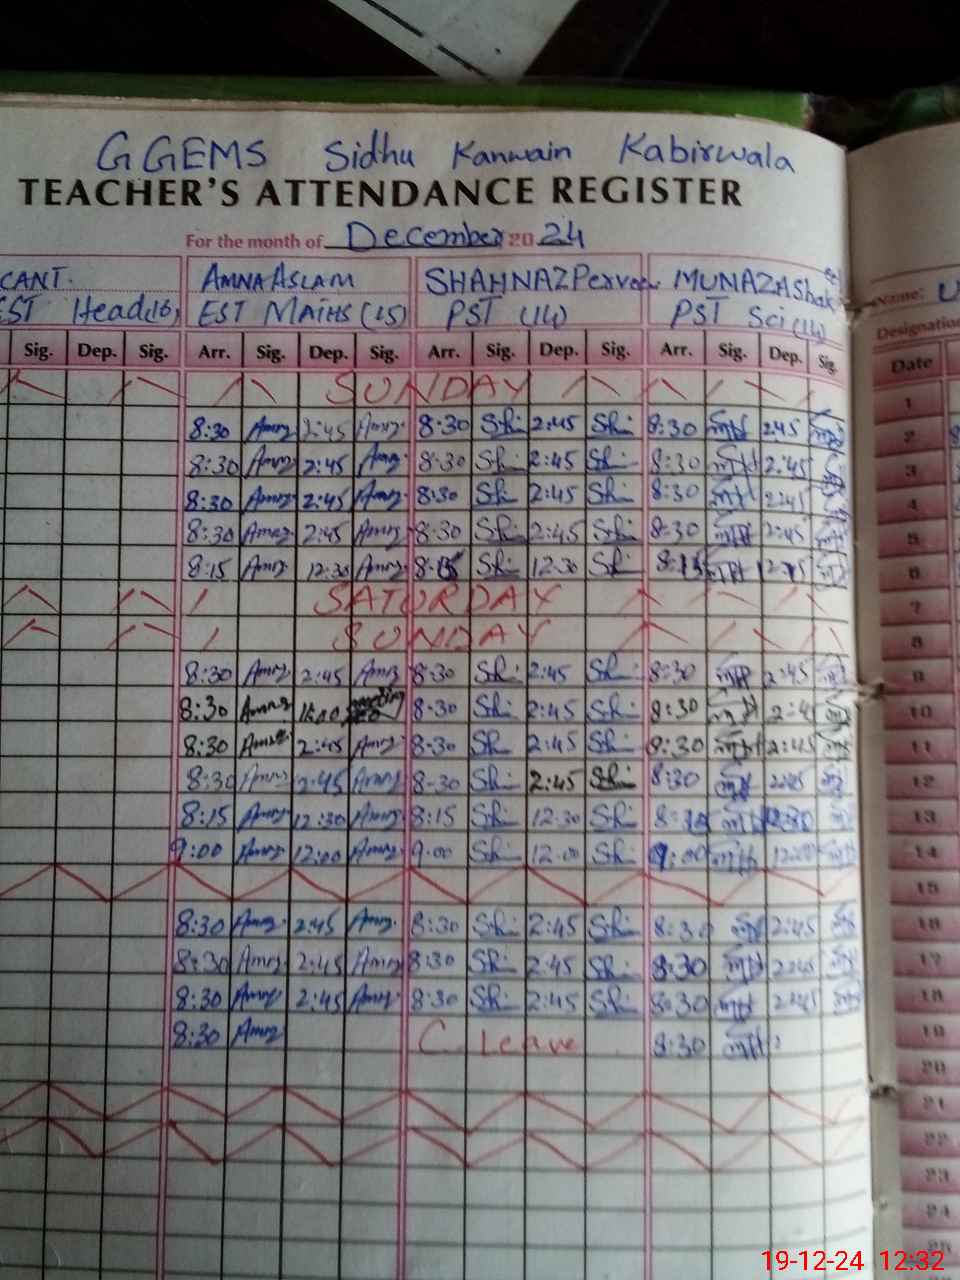 GGEMS Sidhu Kanwain Kabirwala
TEACHER'S ATTENDANCE REGISTER
For the month of December 2024
CANT. AMNA ASLAM SHAHNAZ Perveen MUNAZA Shak
EST Head(16) EST MATHS (15) PST (14) PST Sci (14)
Name:
Designation
Sig. Dep. Sig. Arr. Sig. Dep. Sig. Arr. Sig. Dep. Sig. Arr. Sig. Dep. Sig. Date
SUNDAY 1
8:30 Amna 2:45 Amna 8:30 Sh 2:45 Sh 8:30 2:45 2
8:30 Amna 2:45 Amna 8:30 Sh 2:45 Sh 8:30 2:45 3
8:30 Amna 2:45 Amna 8:30 Sh 2:45 Sh 8:30 2:45 4
8:30 Amna 2:45 Amna 8:30 Sh 2:45 Sh 8:30 2:45 5
8:15 Amna 12:30 Amna 8:15 Sh 12:30 Sh 8:15 6
SATURDAY 7
SUNDAY 8
8:30 Amna 2:45 Amna 8:30 Sh 2:45 Sh 8:30 2:45 9
8:30 Amna 8:30 Sh 2:45 Sh 8:30 2:4 10
8:30 Amna 2:45 Amna 8:30 Sh 2:45 Sh 8:30 2:45 11
8:30 Amna 2:45 Amna 8:30 Sh 2:45 Sh 8:30 2:45 12
8:15 Amna 12:30 Amna 8:15 Sh 12:30 Sh 12:30 13
9:00 Amna 12:00 Amna 9:00 Sh 12:00 Sh 9:00 12:00 14
15
8:30 Amna 2:45 Amna 8:30 Sh 2:45 Sh 8:30 2:45 16
8:30 Amna 2:45 Amna 8:30 Sh 2:45 Sh 8:30 2:45 17
8:30 Amna 2:45 Amna 8:30 Sh 2:45 Sh 8:30 2:45 18
8:30 Amna C. Leave 8:30 19
20
21
22
23
24
25
19-12-24 12:32